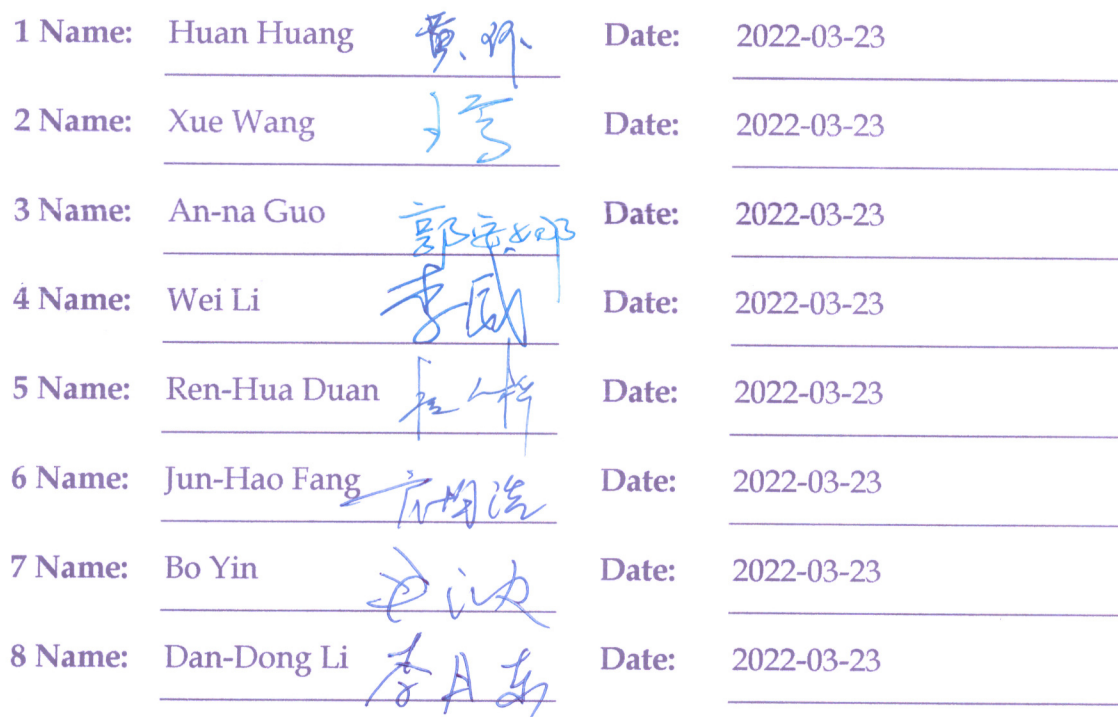 1 Name: Huan Huang 黄欢 Date: 2022-03-23
2 Name: Xue Wang Date: 2022-03-23
3 Name: An-na Guo 郭安娜 Date: 2022-03-23
4 Name: Wei Li 李威 Date: 2022-03-23
5 Name: Ren-Hua Duan Date: 2022-03-23
6 Name: Jun-Hao Fang 方均浩 Date: 2022-03-23
7 Name: Bo Yin Date: 2022-03-23
8 Name: Dan-Dong Li 李丹东 Date: 2022-03-23